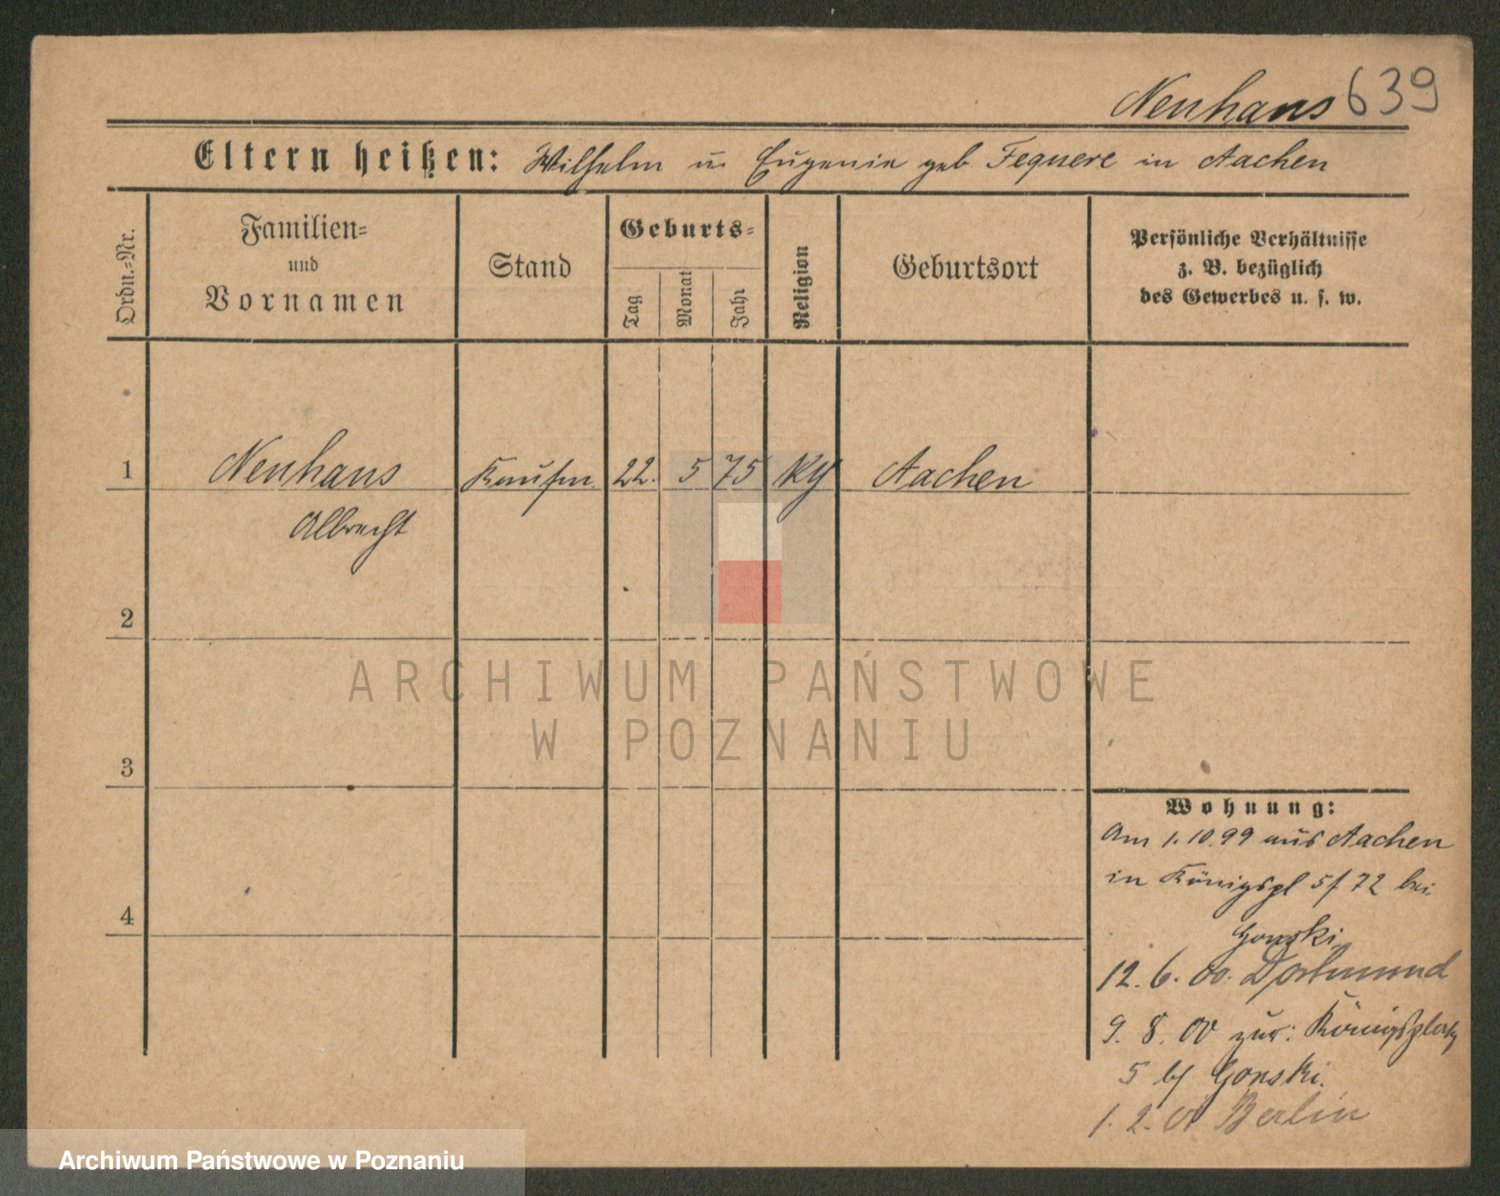 Neuhaus 639
Eltern heißen: Wilhelm u. Eugenie geb Fequere in Aachen
Ordn.-Nr.
Familien-
und
Vornamen
Stand
Geburts-
Tag
Monat
Jahr
Religion
Geburtsort
Persönliche Verhältnisse
z. B. bezüglich
des Gewerbes u. s. w.
1 Neuhaus Kaufm. 22. 5 75 Aachen
Albrecht
2
ARCHIWUM PAŃSTWOWE
W POZNANIU
3
Wohnung:
Am 1.10.99 aus Aachen
in Königspl 5 / 72 bei
Gonski
4
12. 6. 00. Dortmund
9. 8. 00 zur: Königsplatz
5 bei Gonski.
1. 2. 01 Berlin
Archiwum Państwowe w Poznaniu